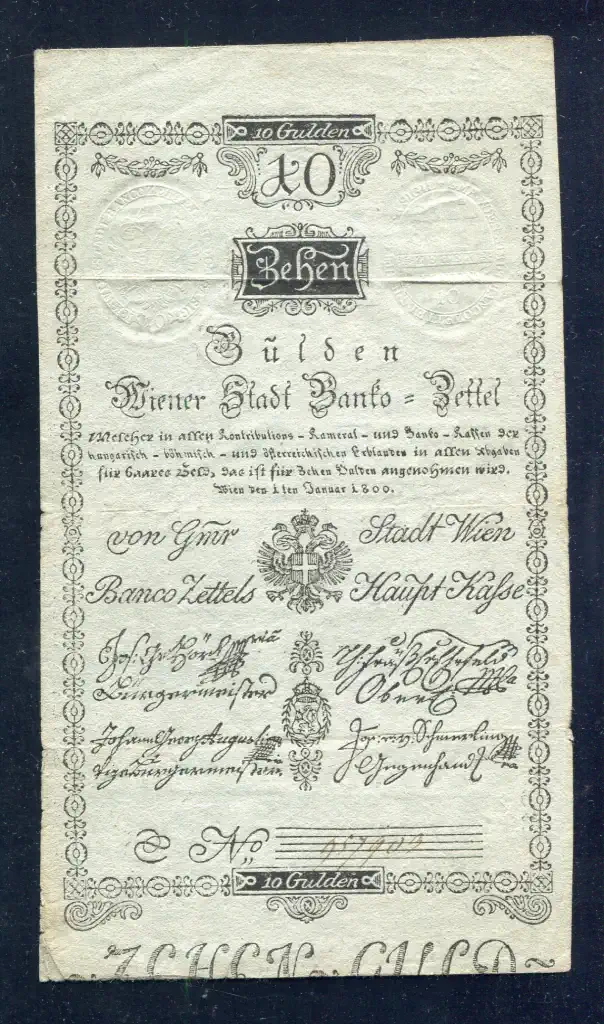 10 Gulden
10
Zehen
Gulden
Wiener Stadt Banko = Zettel
Welcher in allen Kontributions - Kameral - und Banko - Kassen der
hungarisch - böhmisch - und österreichischen Erblanden in allen Abgaben
für baares Geld, das ist für Zehen Gulden angenommen wird.
Wien den 1ten Januar 1800.
von Gmr Stadt Wien
Banco Zettels Haupt Kasse
Jos:
Bürgermeister Oberei
Johann Georg Augustin Jos: v: Schmerling
Vizebürgermeister Gegenhandl
No
10 Gulden
ZEHEN GULD